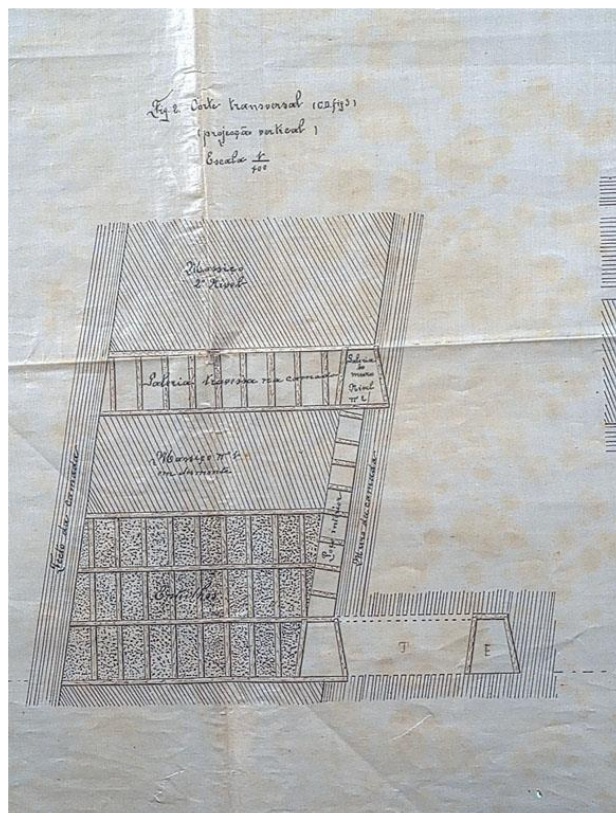 Fig. 2 Corte transversal (CD fig 3)
(projecção vertical)
Escala 1/100
Massiço
2º Nivel
Galeria travessa na camada
Galeria
do
muro
Nivel
nº 2
Massiço nº 1
em desmonte
Tecto da camada
Poço interior
Muro da camada
Entulhos
T
E